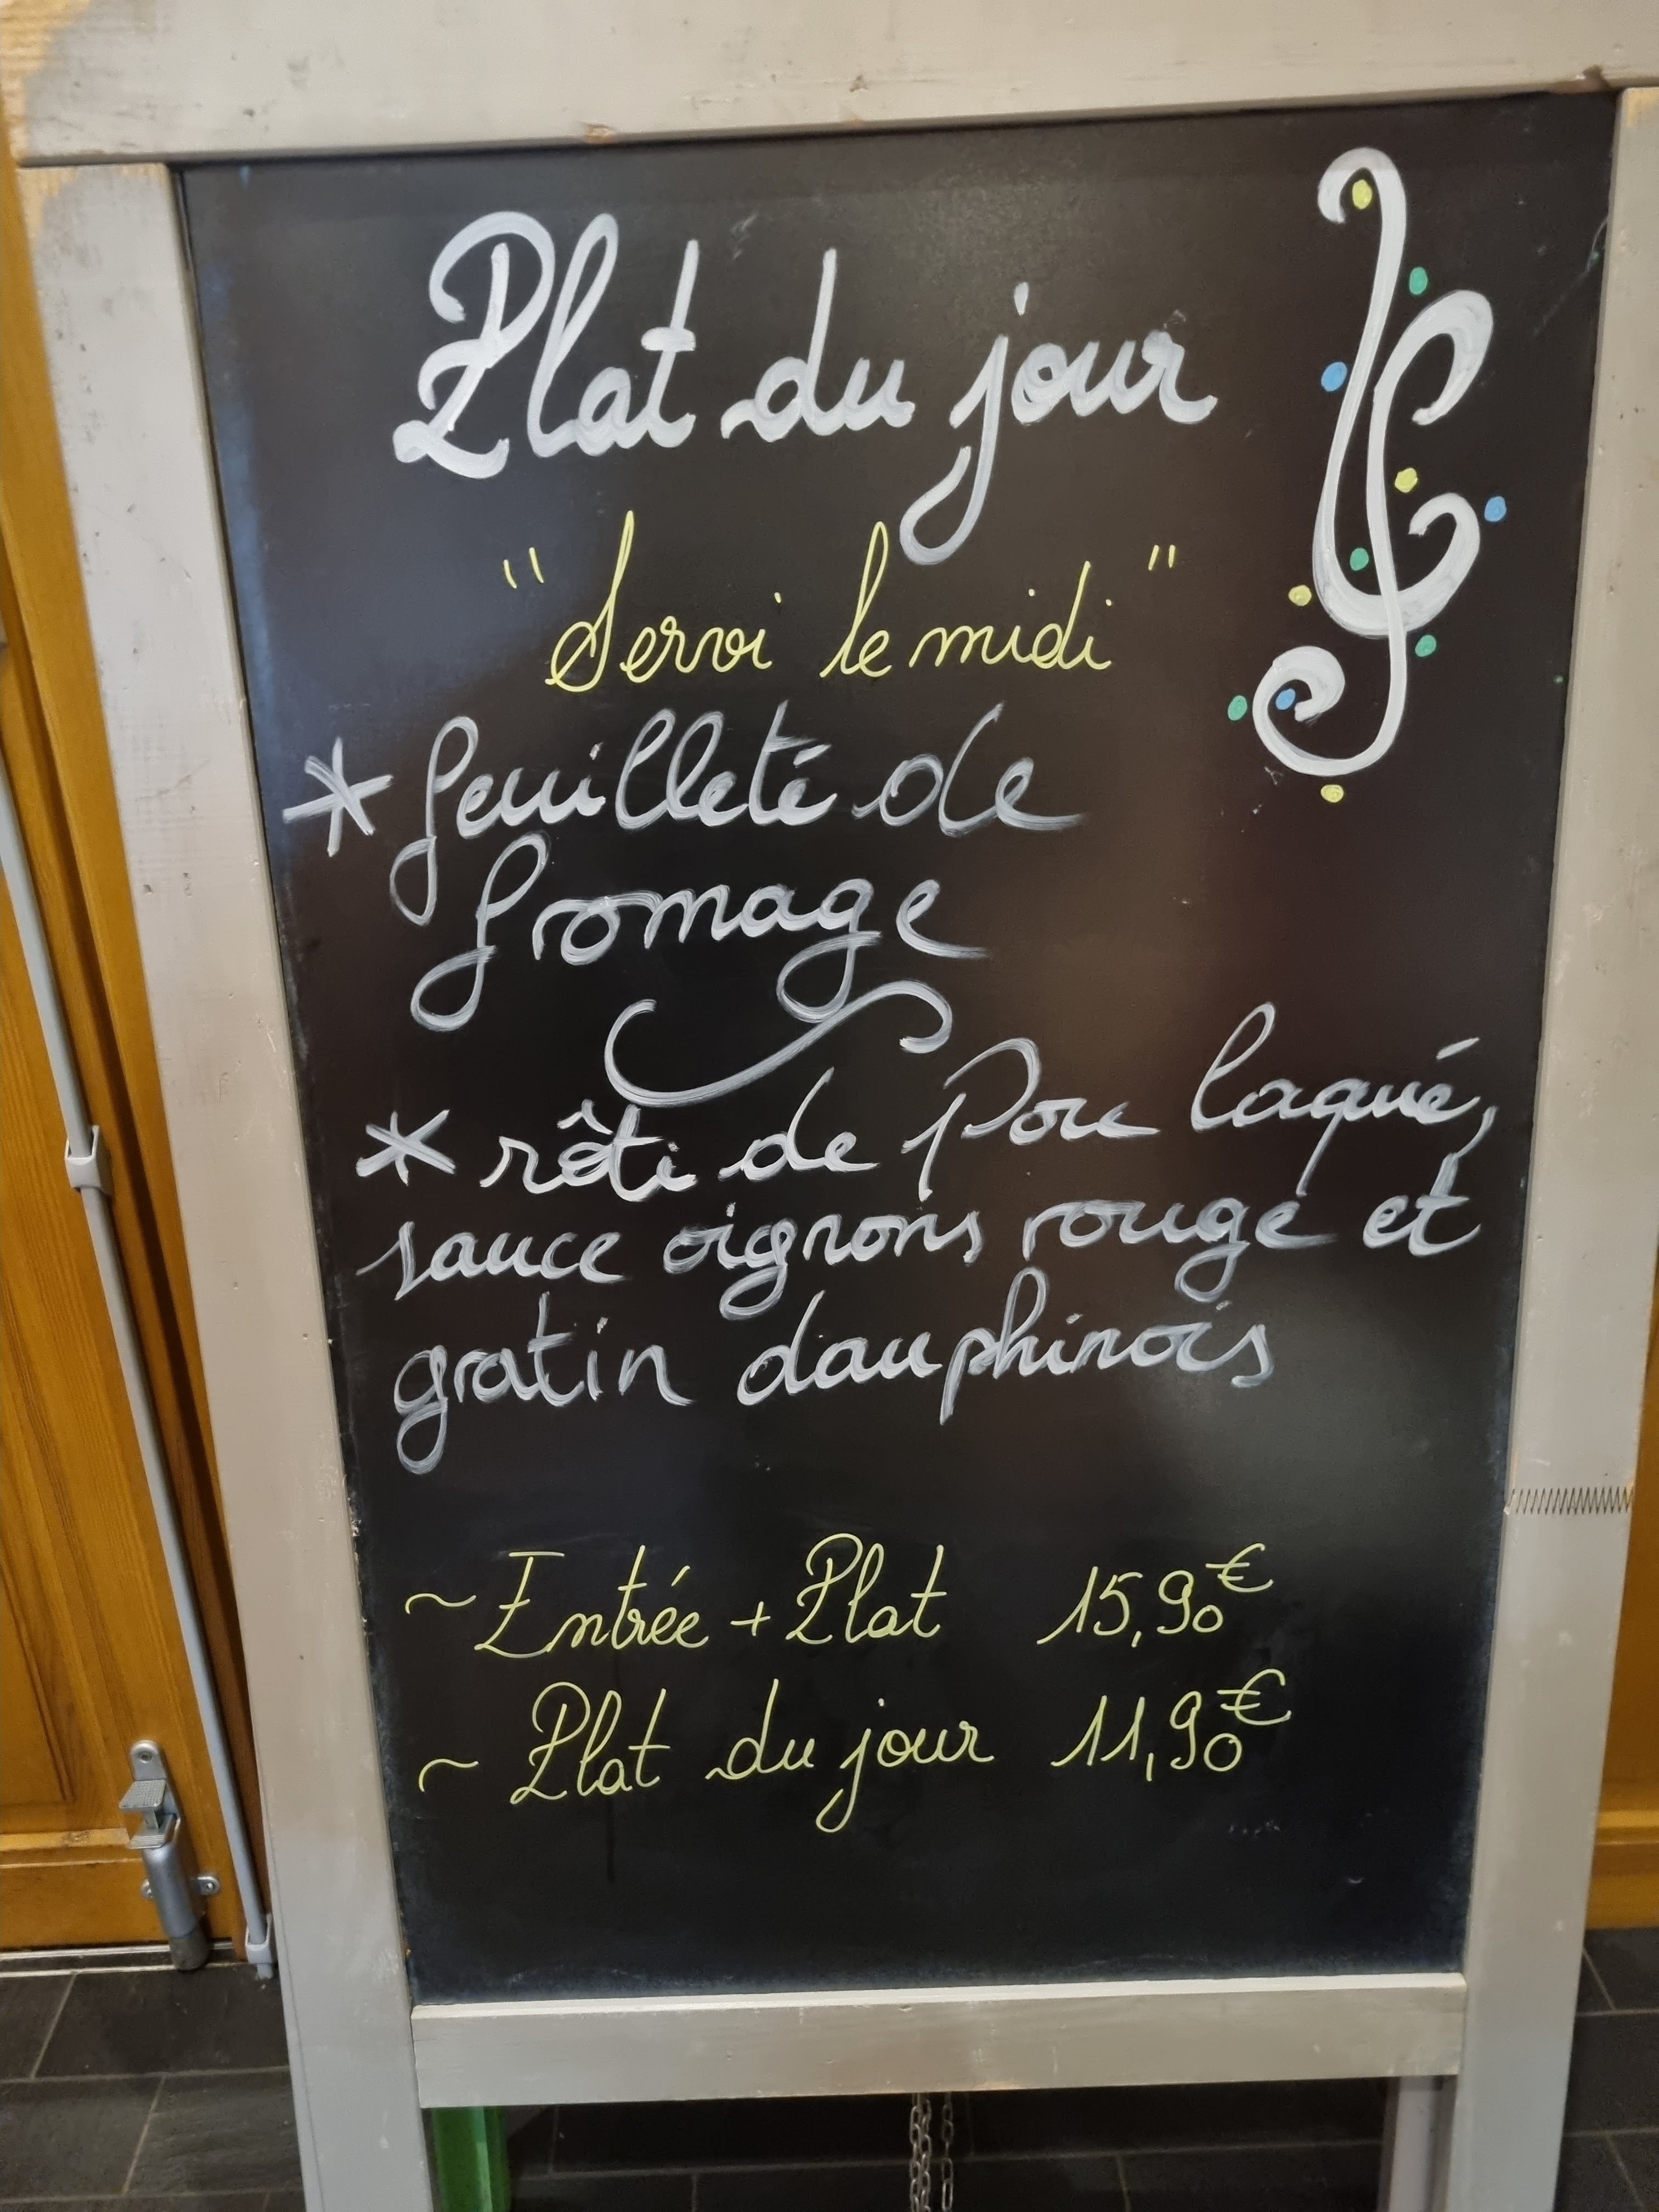 Plat du jour
"Servi le midi"
* feuilleté de
fromage
* rôti de Porc laqué,
sauce oignons rouge et
gratin dauphinois
~ Entrée + Plat 15,90€
~ Plat du jour 11,90€